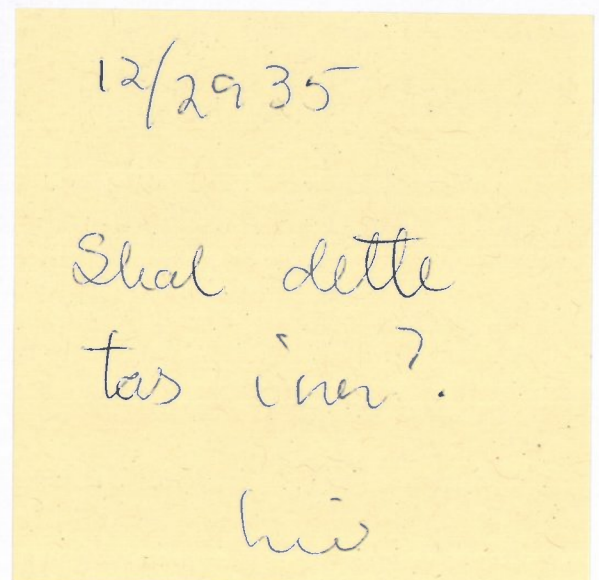 12/2935
Skal dette
tas inn?.